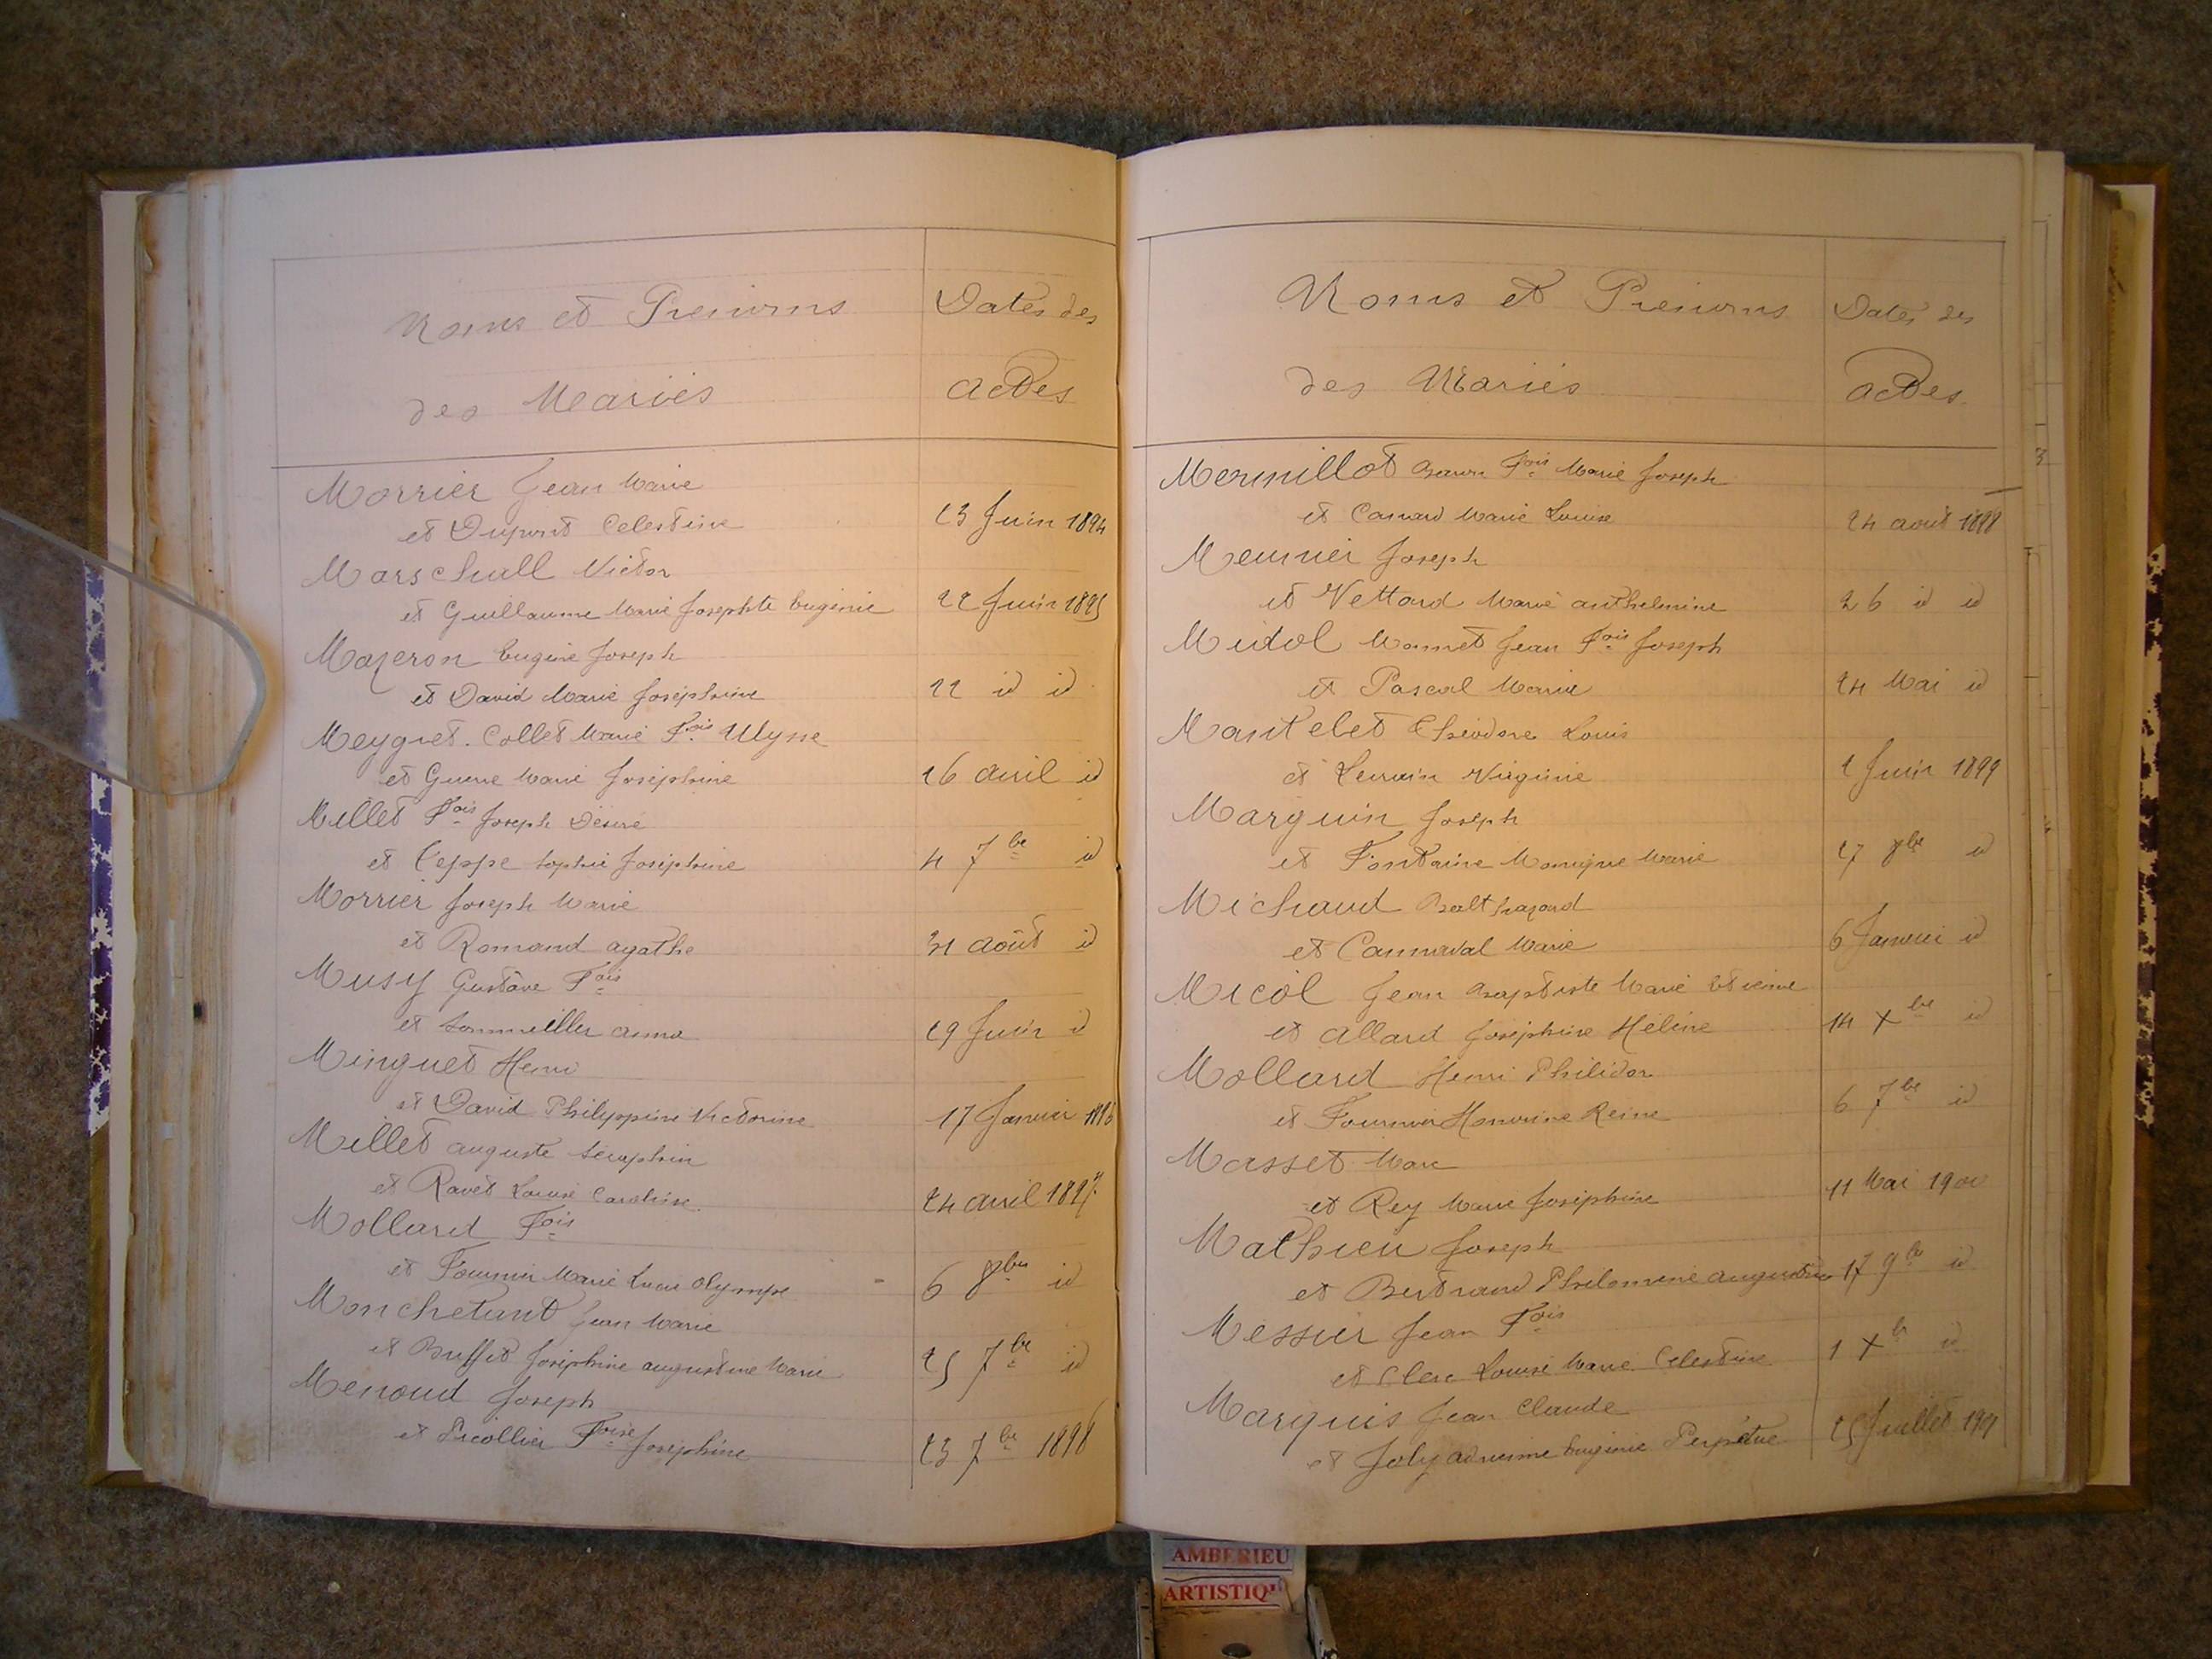 Noms et Prénoms Dates des
des Mariés actes
Morrier Jean Marie
et Dupont Celestine 23 Juin 1894
Marschall Victor
et Guillaume Marie Josephte Eugénie 22 Juin 1895
Mazeron Eugène Joseph
et David Marie Joséphine 22 id id
Meygret. Collet Marie Fois Ulysse
et Guerre Marie Joséphine 26 avril id
Millet Fois Joseph Désiré
et Ceppe Sophie Joséphine 4 7bre id
Morrier Joseph Marie
et Romand agathe 31 août id
Musy Gustave Fois
et Sommeiller anna 29 Juin id
Minguet Henri
et David Philippine Victorine 17 Janvier 1896
Millet auguste Séraphin
et Ravet Louise Caroline. 24 avril 1897
Mollard Fois
et Fournier Marie Lucie Olympe - 6 8bre id
Monchetant Jean Marie
et Buffet Joséphine augustine Marie 25 7bre id
Menoud Joseph
et Picollier Foise Joséphine 23 7bre 1898
Noms et Prénoms Dates des
des Mariés actes
Mermillot Fois Marie Joseph
et Canard Marie Louise 24 août 1898
Meunier Joseph
et Vettard Marie anthelmine 26 id id
Midol Monnet Jean Fois Joseph
et Pascal Marie 24 Mai id
Mantelet Théodore Louis
et Virginie 1 Juin 1899
Marguin Joseph
et Fontaine Monique Marie 27 8bre id
Michaud Balthazard
et Cannaval Marie 6 Janvier id
Micol Jean Baptiste Marie Etienne
et allard Joséphine Héline 14 Xbre id
Mollard Henri Philidor
et Fournier Honorine Reine 6 7bre id
Masset Marc
et Rey Marie Joséphine 11 Mai 1900
Mathieu Joseph
et Bertrand Philomène augustine 17 9bre id
Messier Jean Fois
et Clerc Louise Marie Celestine 1 Xbre id
Marquis Jean Claude
et Joly adrienne Eugénie Perpétue 25 Juillet 1901
AMBERIEU
ARTISTIQU